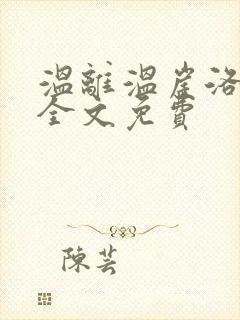 溫離溫崖洛
全文免費
陳芸